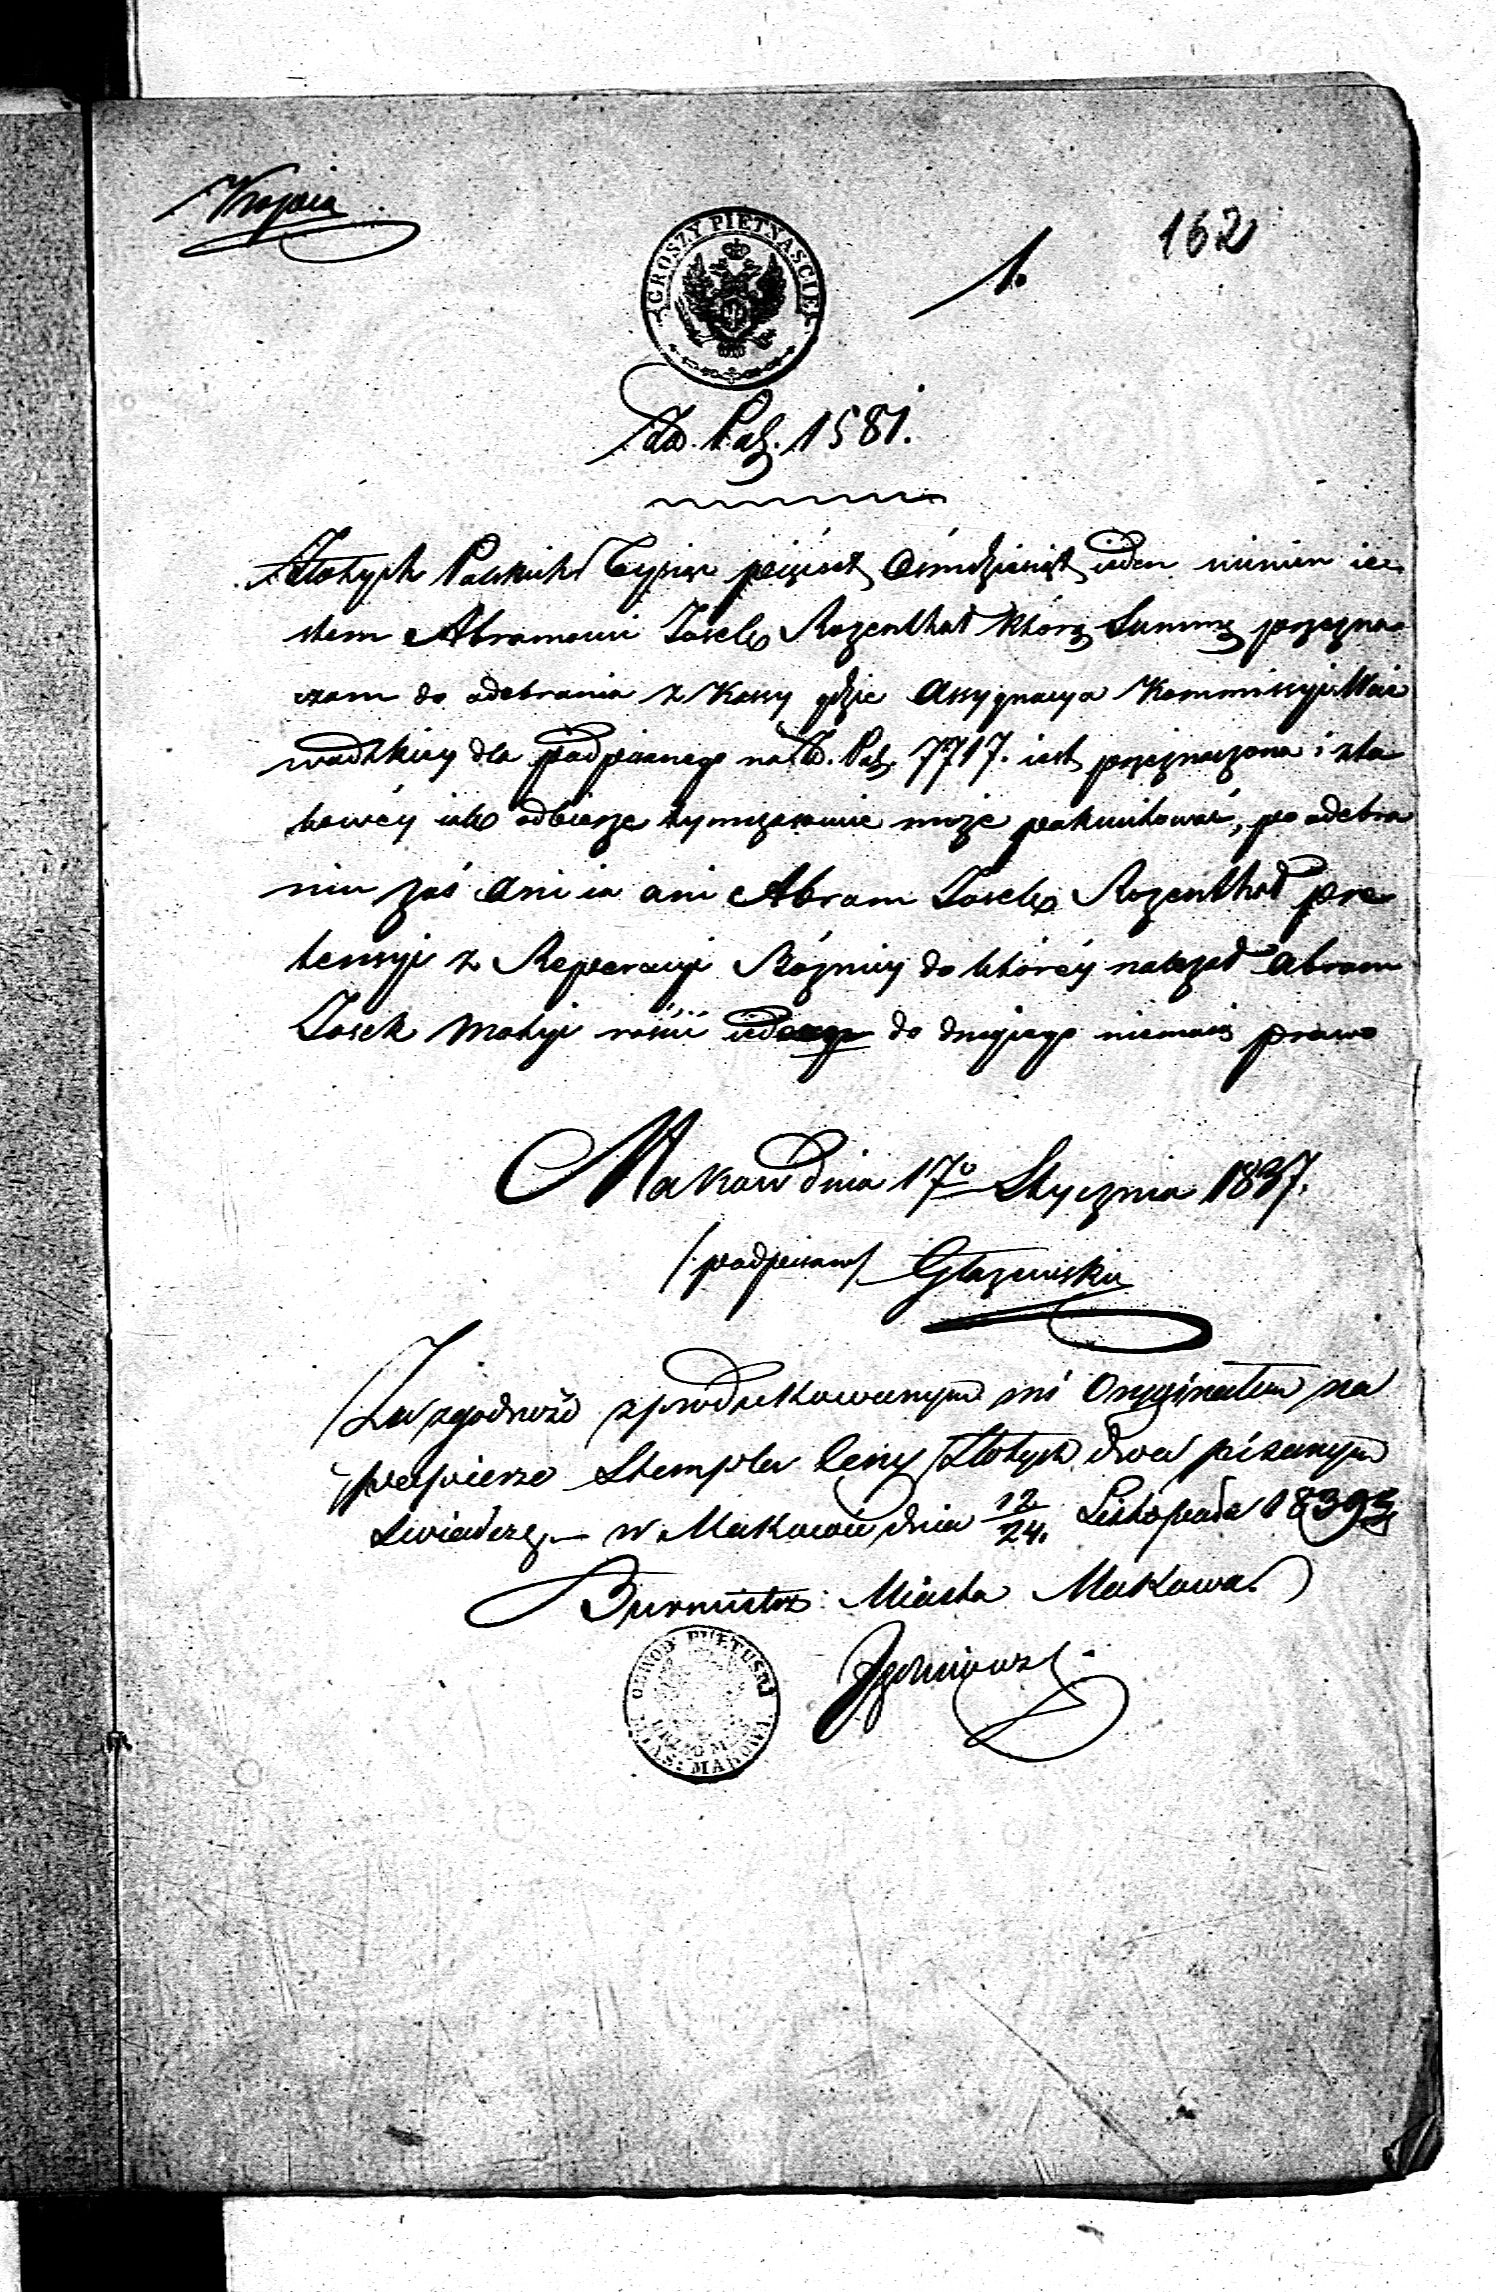 Kopia
162
1.
GROSZY PIETNAŚCIE
Zło. Pol. 1581.
Złotych Polskich Tysiąc pięćset Ośmdziesiąt ieden winien ie-
stem Abramowi Josek Rozenthal którą Summę przezna-
czam do odebrania z Kassy gdzie Assygnacya Kommissyi Woie
wodzkiey dla podpisanego na Zło. Pol. 7717. iest przeznaczona i z ta
kowéy iak odbierze tymczasowie może pokwitować, po odebra
niu zaś ani ia ani Abram Josek Rozenthal pre
tensyi z Reperacyi Bóżnicy do któréy należał Abram
Josek Motyl rościć do drugiego niemaią prawa
Maków dnia 17o Stycznia 1837.
/podpisany/ Głażewski
Za zgodność z produkowanym mi Oryginałem na
papierze Stempla Ceny Złotych dwa pisanym
świadczę. — w Makowie dnia 12/24. Listopada 1839
Burmistrz Miasta Makowa.
OBWÓD PUŁTUSKI
URZĄD M.
MIAS: MAKOWA